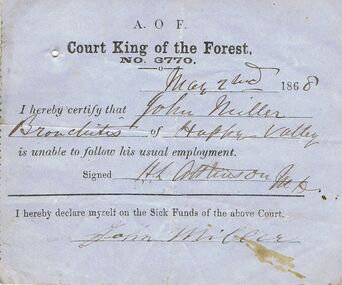 A. O F.
Court King of the Forest,
NO. 3770.
May 2nd 1868
I hereby certify that John Miller
Bronchitis of Happy Valley
is unable to follow his usual employment.
Signed H L Atkinson M D.
I hereby declare myself on the Sick Funds of the above Court.
John Miller